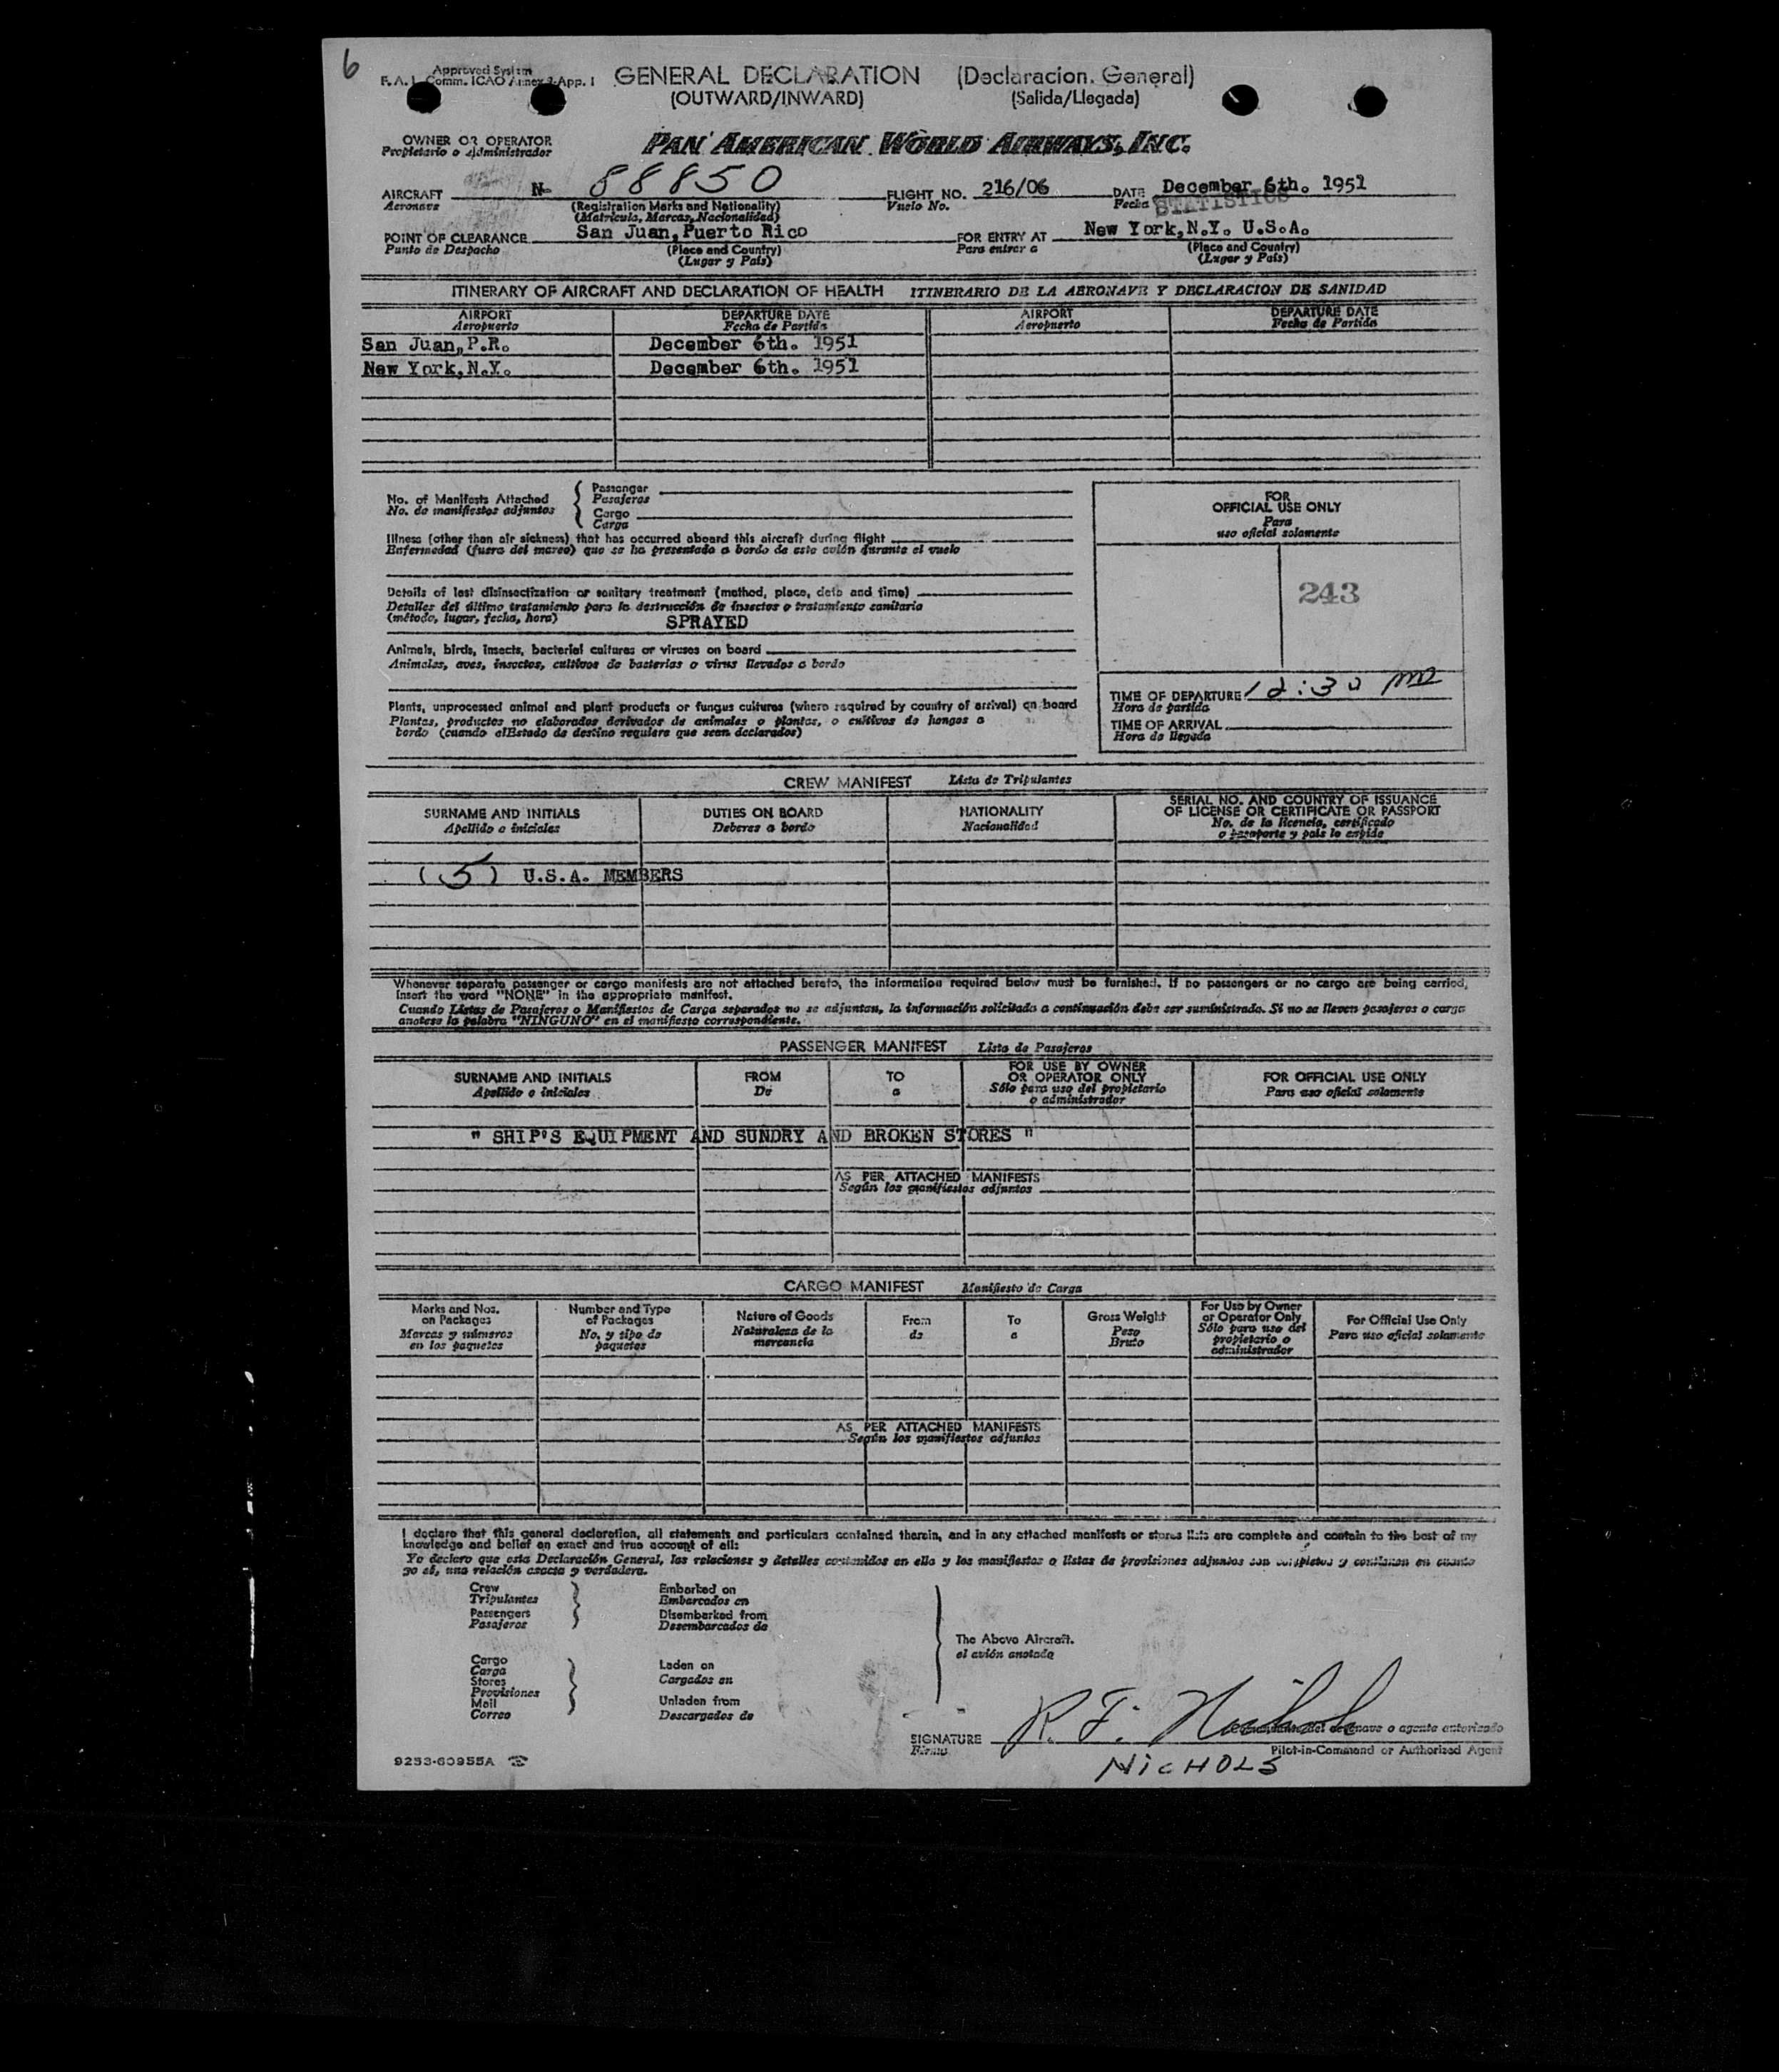 6
Approved System
F. A. L. Comm. ICAO Annex 9 App. 1
GENERAL DECLARATION (Declaracion General)
(OUTWARD/INWARD) (Salida/Llegada)
OWNER OR OPERATOR
Propietario o Administrador
PAN AMERICAN WORLD AIRWAYS, INC.
AIRCRAFT N- 88850 FLIGHT NO. 216/06 DATE December 6th. 1951
Aeronave (Registration Marks and Nationality) Vuelo No. Fecha STATISTICS
(Matricula, Marcas, Nacionalidad)
POINT OF CLEARANCE San Juan, Puerto Rico FOR ENTRY AT New York, N.Y. U.S.A.
Punto de Despacho (Place and Country) Para entrar a (Place and Country)
(Lugar y País) (Lugar y País)
ITINERARY OF AIRCRAFT AND DECLARATION OF HEALTH ITINERARIO DE LA AERONAVE Y DECLARACION DE SANIDAD
AIRPORT DEPARTURE DATE AIRPORT DEPARTURE DATE
Aeropuerto Fecha de Partida Aeropuerto Fecha de Partida
San Juan, P.R. December 6th. 1951
New York, N.Y. December 6th. 1951
No. of Manifests Attached
No. de manifiestos adjuntos
Passenger
Pasajeros
Cargo
Carga
Illness (other than air sickness) that has occurred aboard this aircraft during flight
Enfermedad (fuera del mareo) que se ha presentado a bordo de este avión durante el vuelo
Details of last disinsectization or sanitary treatment (method, place, date and time)
Detalles del último tratamiento para la destrucción de insectos o tratamiento sanitario
(método, lugar, fecha, hora) SPRAYED
Animals, birds, insects, bacterial cultures or viruses on board
Animales, aves, insectos, cultivos de bacterias o virus llevados a bordo
Plants, unprocessed animal and plant products or fungus cultures (where required by country of arrival) on board
Plantas, productos no elaborados derivados de animales o plantas, o cultivos de hongos a
bordo (cuando elEstado de destino requiera que sean declarados)
FOR
OFFICIAL USE ONLY
Para
uso oficial solamente
243
TIME OF DEPARTURE 12:30 PM
Hora de partida
TIME OF ARRIVAL
Hora de llegada
CREW MANIFEST Lista de Tripulantes
SURNAME AND INITIALS DUTIES ON BOARD NATIONALITY SERIAL NO. AND COUNTRY OF ISSUANCE
Apellido e iniciales Deberes a bordo Nacionalidad OF LICENSE OR CERTIFICATE OR PASSPORT
No. de la licencia, certificado
o pasaporte y país lo expide
(5) U.S.A. MEMBERS
Whenever separate passenger or cargo manifests are not attached hereto, the information required below must be furnished. If no passengers or no cargo are being carried,
insert the word "NONE" in the appropriate manifest.
Cuando Listas de Pasajeros o Manifiestos de Carga separados no se adjuntan, la información solicitada a continuación debe ser suministrada. Si no se lleven pasajeros o carga
anotese la palabra "NINGUNO" en el manifiesto correspondiente.
PASSENGER MANIFEST Lista de Pasajeros
SURNAME AND INITIALS FROM TO FOR USE BY OWNER FOR OFFICIAL USE ONLY
Apellido e iniciales De a OR OPERATOR ONLY Para uso oficial solamente
Sólo para uso del propietario
o administrador
" SHIP'S EQUIPMENT AND SUNDRY AND BROKEN STORES "
AS PER ATTACHED MANIFESTS
Según los manifiestos adjuntos
CARGO MANIFEST Manifiesto de Carga
Marks and Nos. on Packages Number and Type of Packages Nature of Goods From To Gross Weight For Use by Owner or Operator Only For Official Use Only
Marcas y números en los paquetes No. y tipo de paquetes Naturaleza de la mercancia de a Peso Bruto Sólo para uso del propietario o administrador Para uso oficial solamente
AS PER ATTACHED MANIFESTS
Según los manifiestos adjuntos
I declare that this general declaration, all statements and particulars contained therein, and in any attached manifests or stores lists are complete and contain to the best of my
knowledge and belief an exact and true account of all:
Yo declaro que esta Declaración General, las relaciones y detalles contenidos en ella y los manifiestos o listas de provisiones adjuntos son completos y contienen en cuanto
yo sé, una relación exacta y verdadera.
Crew Embarked on
Tripulantes Embarcados en
Passengers Disembarked from
Pasajeros Desembarcados de
The Above Aircraft.
el avión anotado
Cargo
Carga Laden on
Stores Cargados en
Provisiones
Mail Unladen from
Correo Descargados de
SIGNATURE R. F. Nichols aeronave o agente autorizado
Firma Pilot-in-Command or Authorized Agent
NICHOLS
9253-60955A